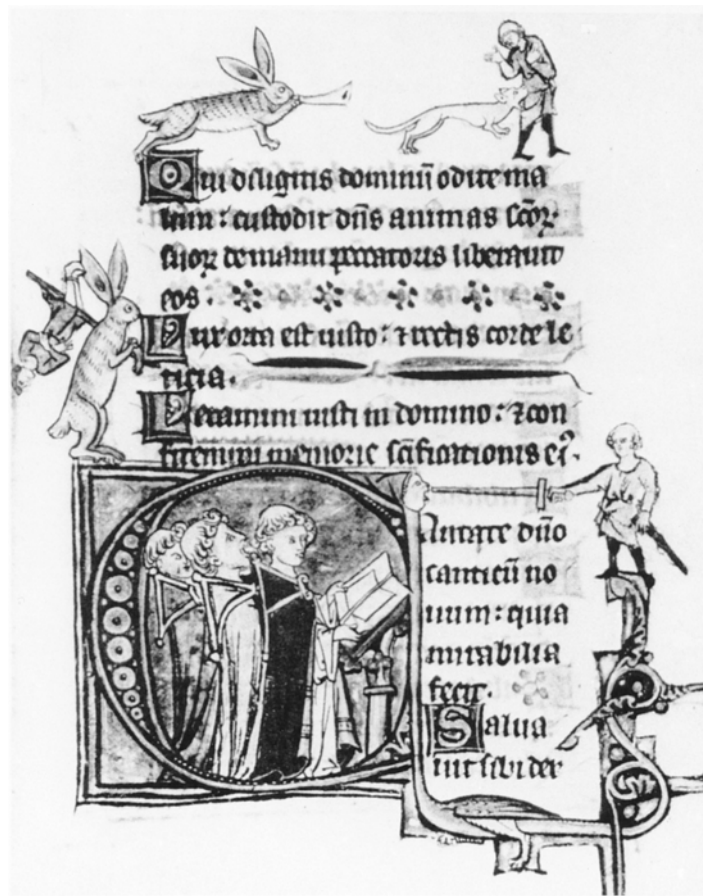 Qui diligitis dominū odite ma
lum : custodit dn̄s animas sc̄oꝝ
suoꝝ de manu peccatoris liberauit
eos .
Lux orta est iusto : ⁊ rectis corde le
ticia .
Letamini iusti in domino : ⁊ con
fitemini memorie sc̄ificationis eiꝰ .
Cantate dn̄o
canticū no
uum : quia
mirabilia
fecit .
Salua
uit sibi dex